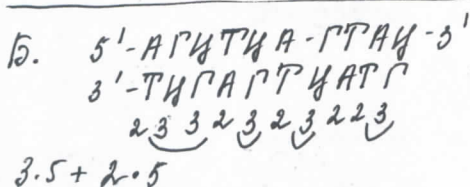 Б. 5'-АГЦТЦА-ГТАЦ-3'
3'-ТЦГАГТЦАТГ
2 3 3 2 3 2 3 2 2 3
3·5 + 2·5